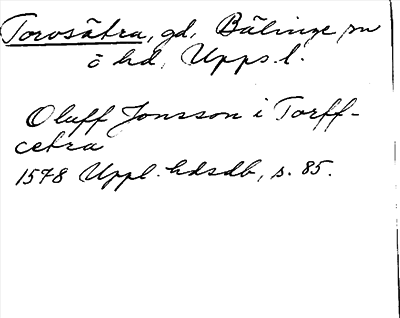 Torvsätra, gd, Bälinge sn
o hd, Upps.l.
Oluff Jonsson i Torff-
cetra
1578 Uppl. hdsdb, s. 85.